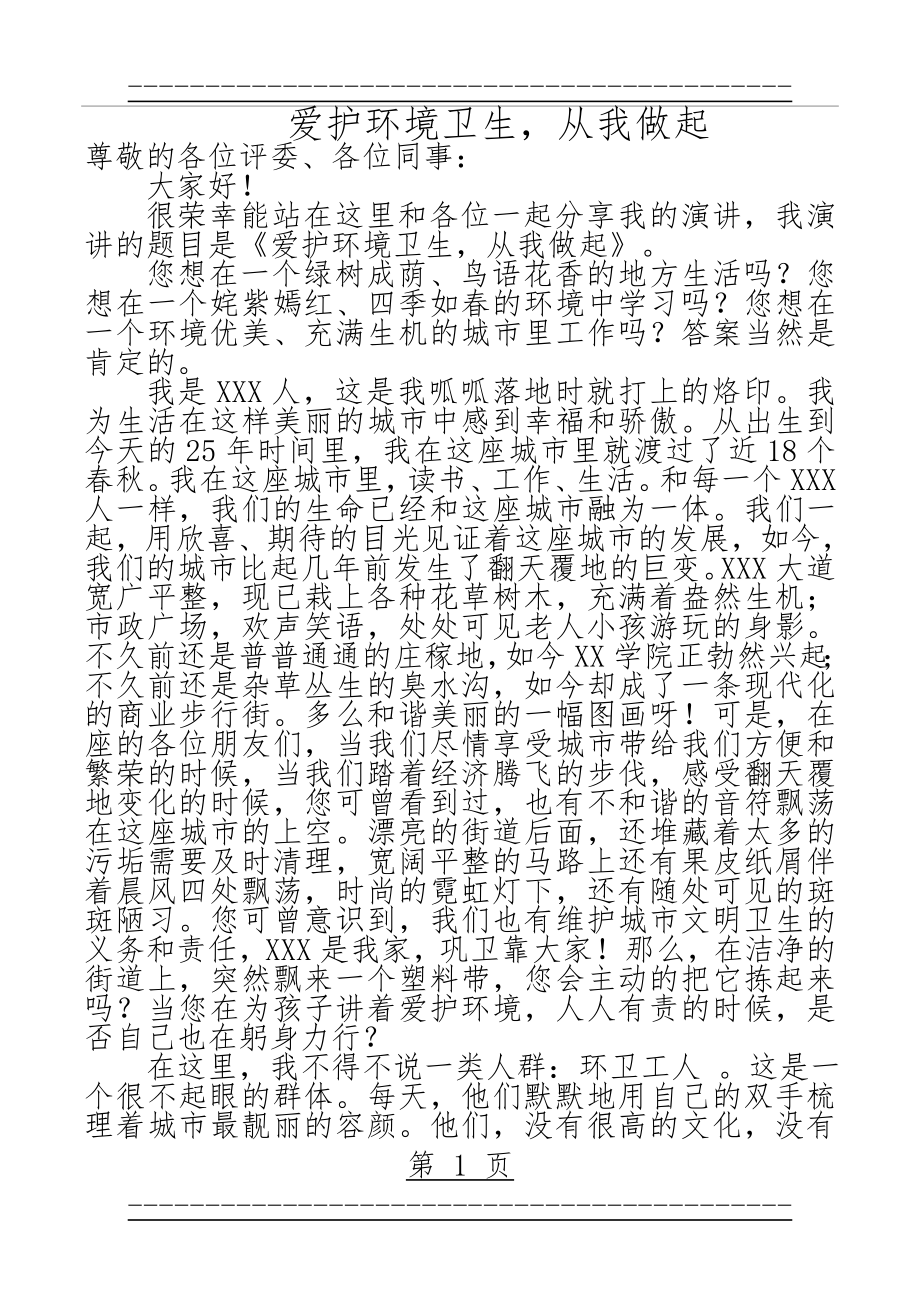 爱护环境卫生，从我做起
尊敬的各位评委、各位同事：
大家好！
很荣幸能站在这里和各位一起分享我的演讲，我演
讲的题目是《爱护环境卫生，从我做起》。
您想在一个绿树成荫、鸟语花香的地方生活吗？您
想在一个姹紫嫣红、四季如春的环境中学习吗？您想在
一个环境优美、充满生机的城市里工作吗？答案当然是
肯定的。
我是 XXX 人，这是我呱呱落地时就打上的烙印。我
为生活在这样美丽的城市中感到幸福和骄傲。从出生到
今天的 25 年时间里，我在这座城市里就渡过了近 18 个
春秋。我在这座城市里，读书、工作、生活。和每一个 XXX
人一样，我们的生命已经和这座城市融为一体。我们一
起，用欣喜、期待的目光见证着这座城市的发展，如今，
我们的城市比起几年前发生了翻天覆地的巨变。XXX 大道
宽广平整，现已栽上各种花草树木，充满着盎然生机；
市政广场，欢声笑语，处处可见老人小孩游玩的身影。
不久前还是普普通通的庄稼地，如今 XX 学院正勃然兴起；
不久前还是杂草丛生的臭水沟，如今却成了一条现代化
的商业步行街。多么和谐美丽的一幅图画呀！可是，在
座的各位朋友们，当我们尽情享受城市带给我们方便和
繁荣的时候，当我们踏着经济腾飞的步伐，感受翻天覆
地变化的时候，您可曾看到过，也有不和谐的音符飘荡
在这座城市的上空。漂亮的街道后面，还堆藏着太多的
污垢需要及时清理，宽阔平整的马路上还有果皮纸屑伴
着晨风四处飘荡，时尚的霓虹灯下，还有随处可见的斑
斑陋习。您可曾意识到，我们也有维护城市文明卫生的
义务和责任，XXX 是我家，巩卫靠大家！那么，在洁净的
街道上，突然飘来一个塑料带，您会主动的把它拣起来
吗？当您在为孩子讲着爱护环境，人人有责的时候，是
否自己也在躬身力行？
在这里，我不得不说一类人群：环卫工人 。这是一
个很不起眼的群体。每天，他们默默地用自己的双手梳
理着城市最靓丽的容颜。他们，没有很高的文化，没有
第 1 页